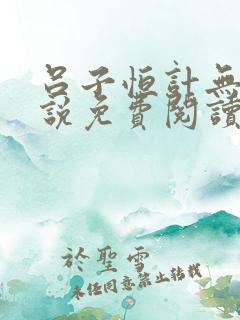 呂子恒計無
說免費閱讀
於聖雪
未經同意禁止轉載